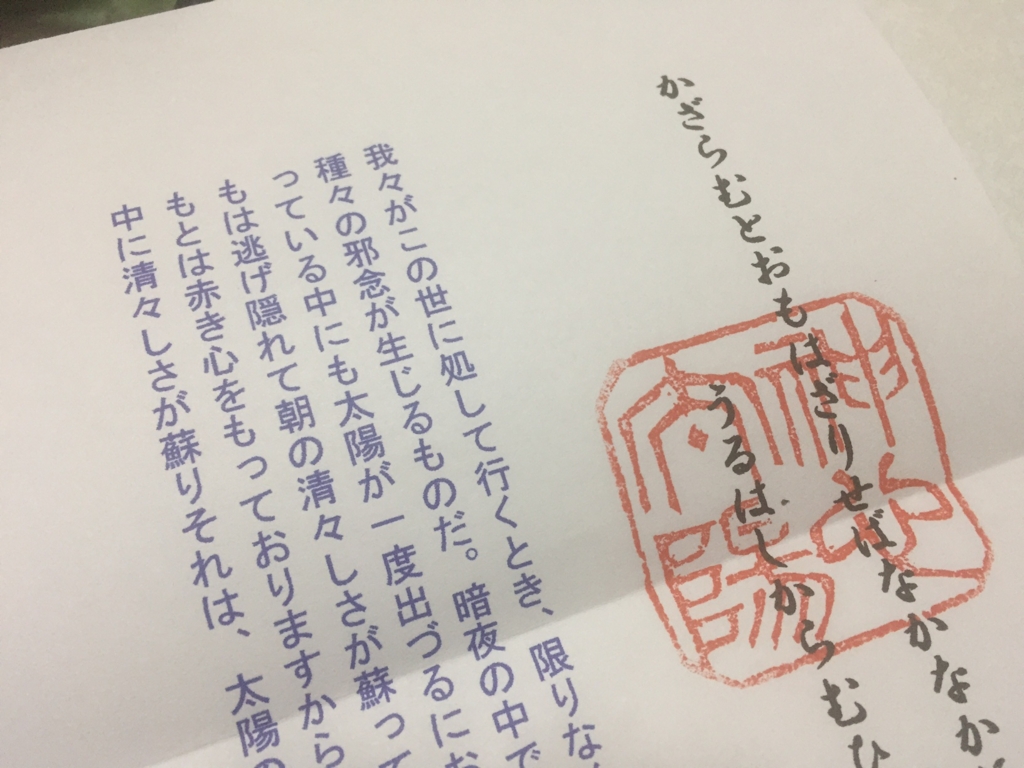 かざらむとおもはざりせばなかなか
うるはしからむひ
我々がこの世に処して行くとき、限りな
種々の邪念が生じるものだ。暗夜の中で
っている中にも太陽が一度出づるにお
もは逃げ隠れて朝の清々しさが蘇って
もとは赤き心をもっておりますから
中に清々しさが蘇りそれは、太陽の